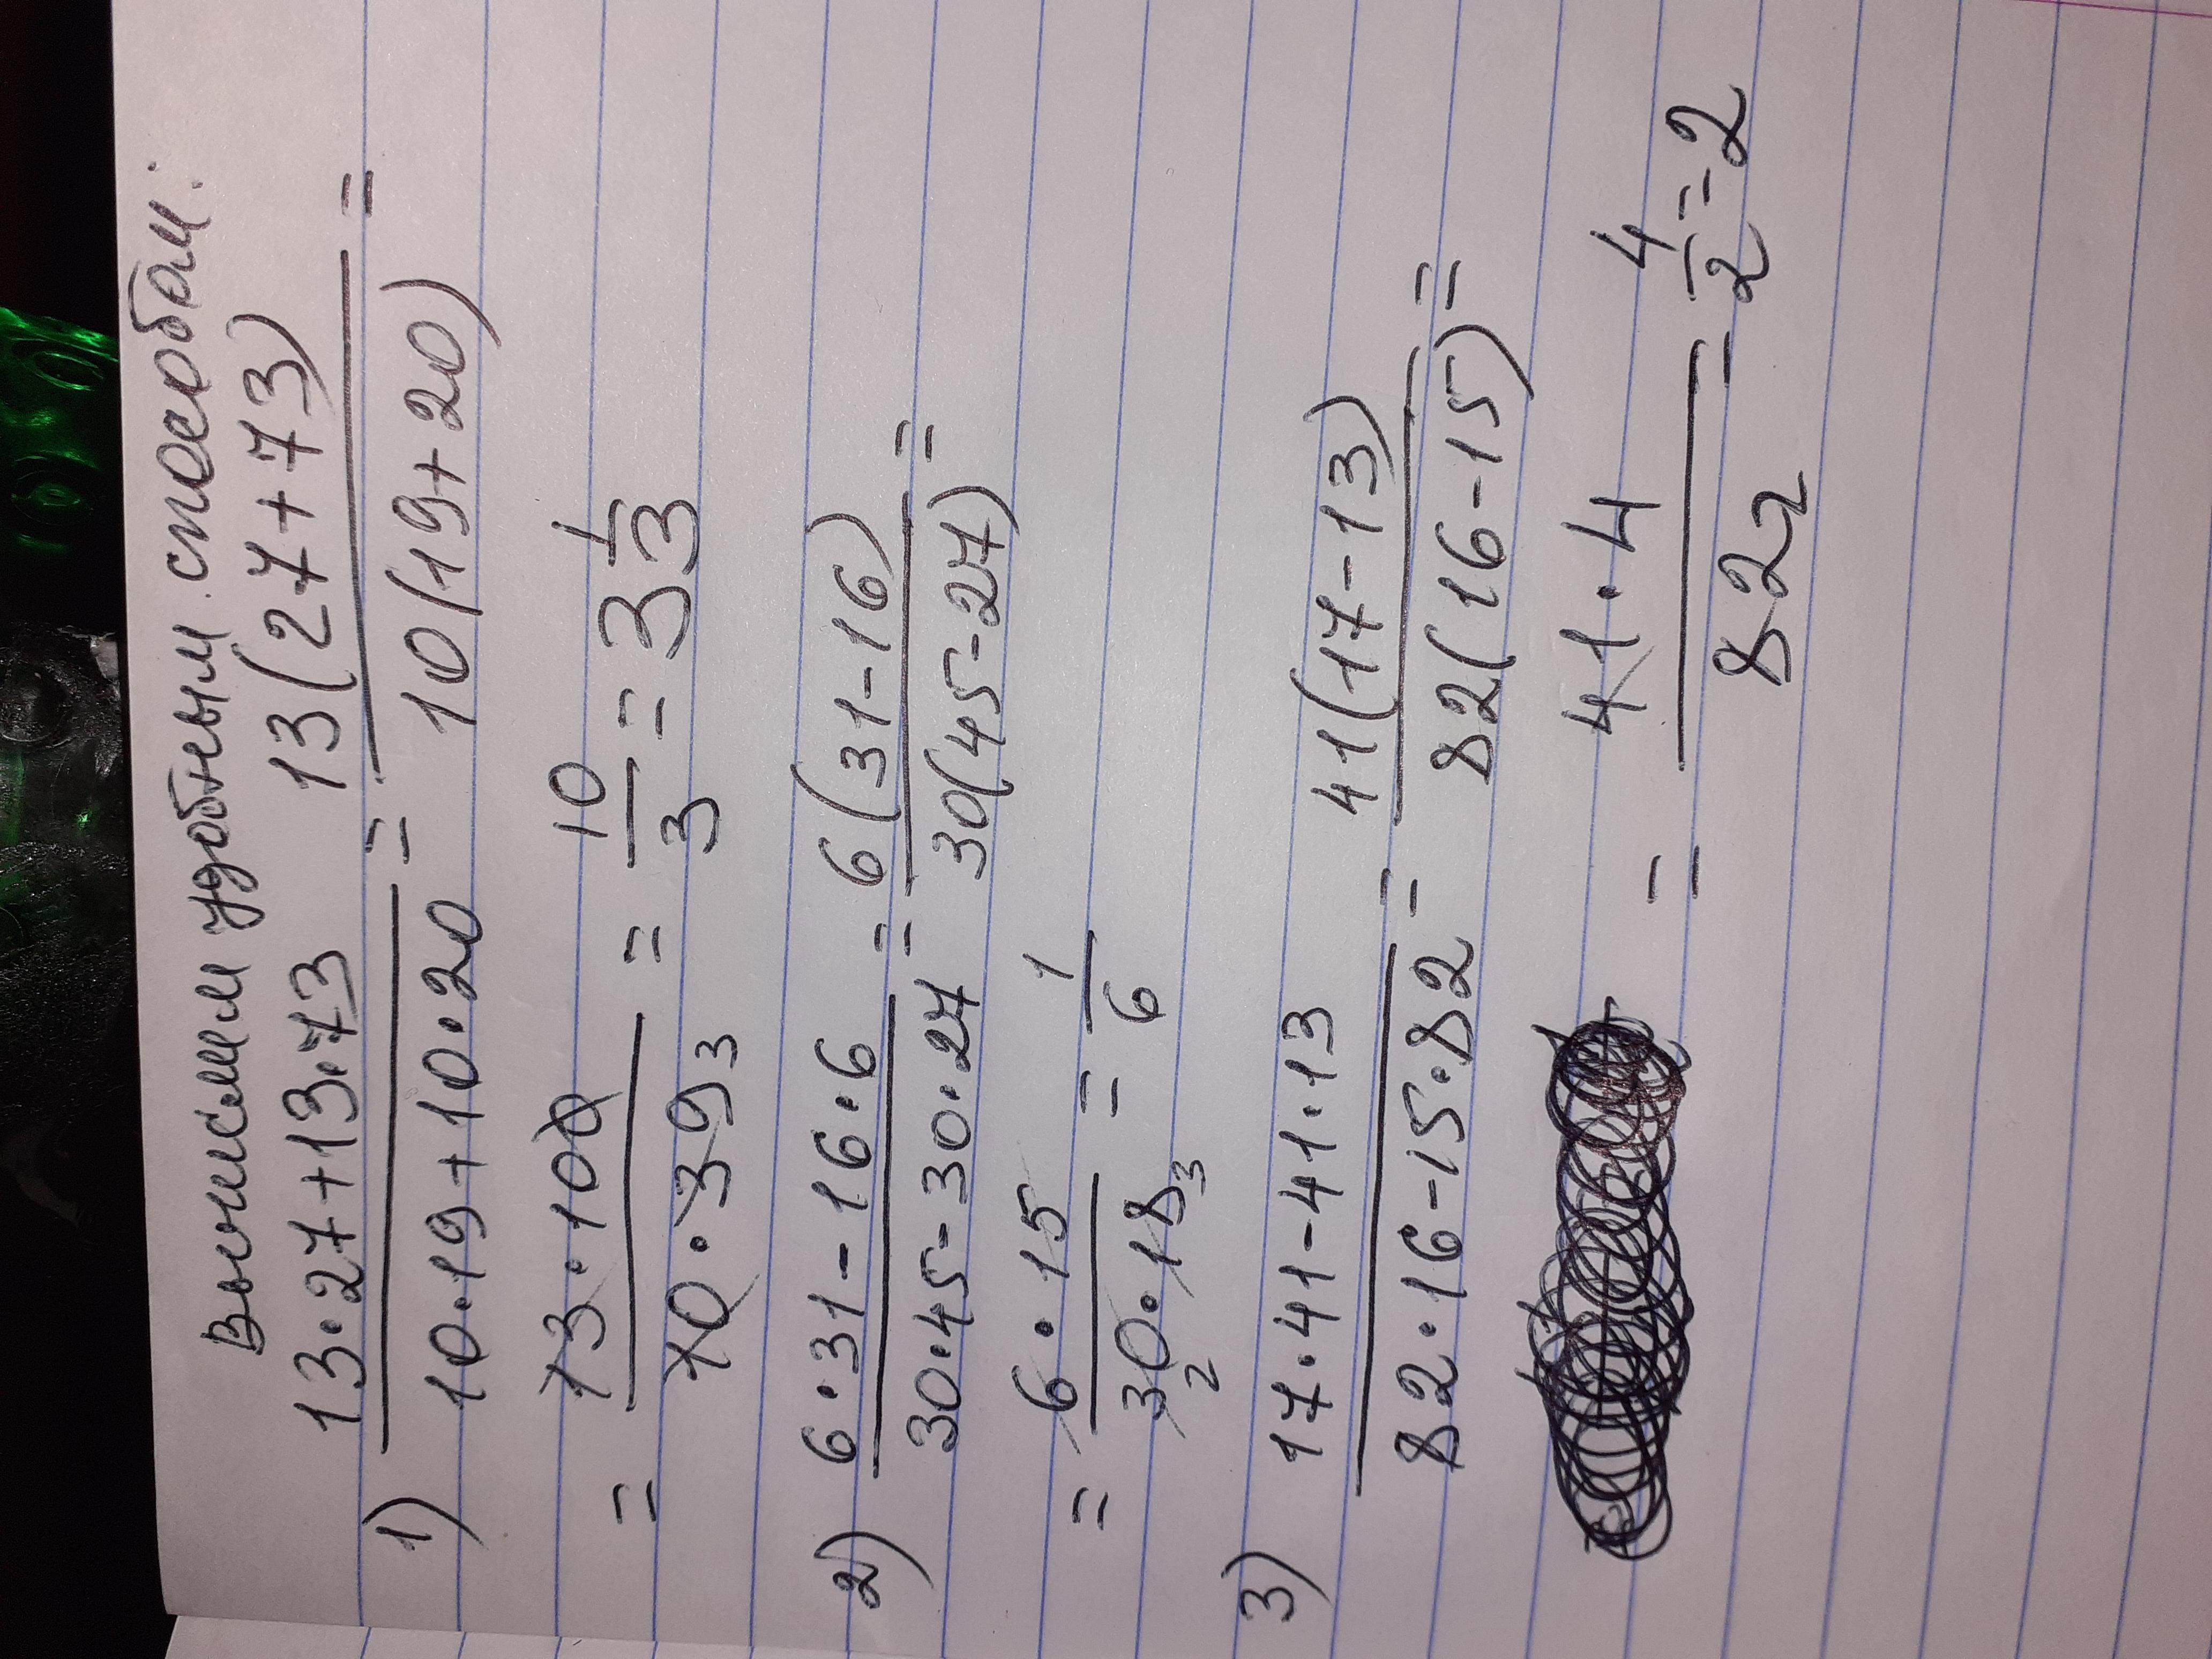 Вычислим удобным способом:
1) (13·27+13·73)/(10·19+10·20) = 13(27+73)/10(19+20) =
= (13·100)/(10·39 3) = 10/3 = 3 1/3
2) (6·31-16·6)/(30·45-30·27) = 6(31-16)/30(45-27) =
= (6·15)/(30 2·18 3) = 1/6
3) (17·41-41·13)/(82·16-15·82) = 41(17-13)/82(16-15) =
= (41·4)/(82 2) = 4/2 = 2